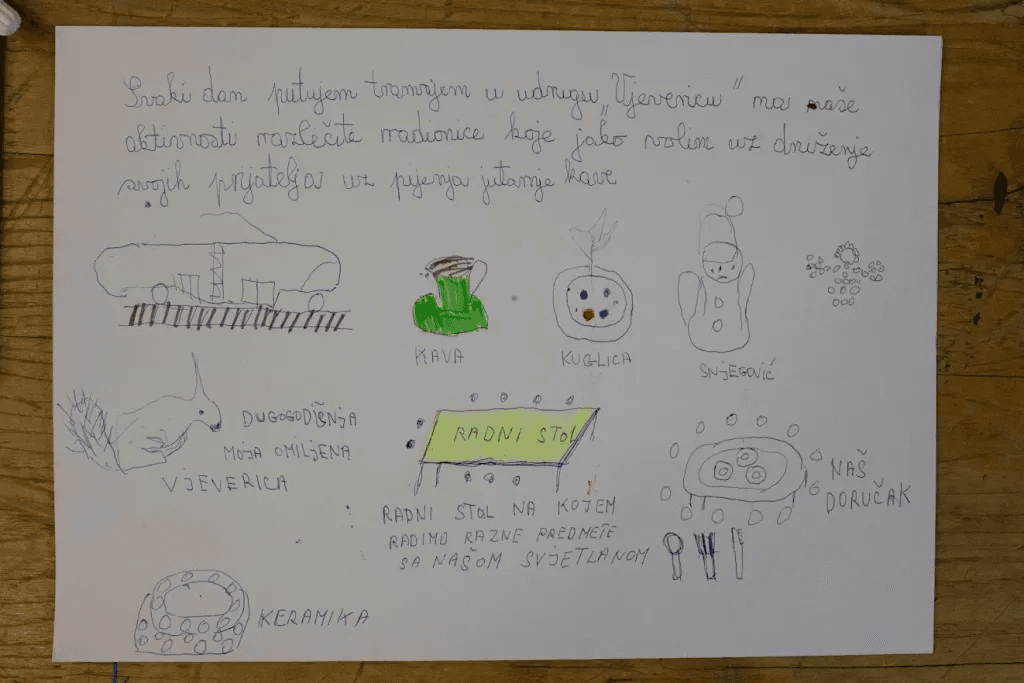 Svaki dan putujem tramvajem u udrugu „Vjevericu" na naše
aktivnosti različite radionice koje jako volim uz druženje
svojih prijatelja uz pijenja jutarnje kave
KAVA
KUGLICA
SNJEGOVIĆ
DUGOGODIŠNJA
MOJA OMILJENA
VJEVERICA
RADNI STOL
RADNI STOL NA KOJEM
RADIMO RAZNE PREDMETE
SA NAŠOM SVJETLANOM
NAŠ
DORUČAK
KERAMIKA